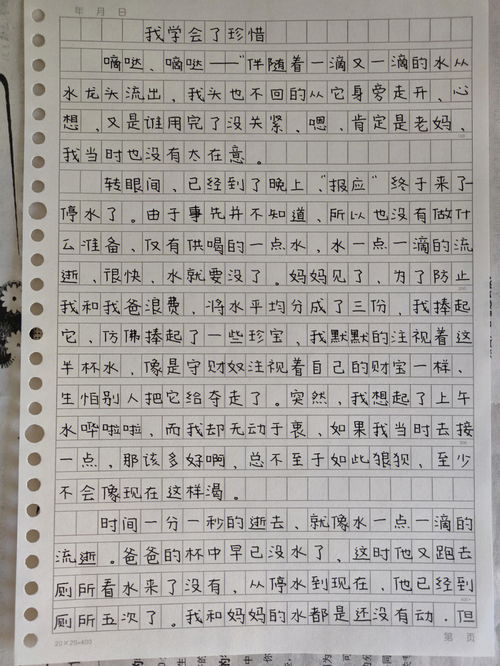 年 月 日
我学会了珍惜
嘀哒、嘀哒——"伴随着一滴又一滴的水从
水龙头流出，我头也不回的从它身旁走开，心
想，又是谁用完了没关紧、嗯，肯定是老妈、
我当时也没有太在意。
转眼间、已经到了晚上、"报应"终于来了
停水了。由于事先并不知道、所以也没有做什
么准备、仅有供喝的一点水，水一点一滴的流
逝、很快、水就要没了。妈妈见了，为了防止
我和我爸浪费，将水平均分成了三份，我捧起
它，仿佛捧起了一些珍宝，我默默的注视着这
半杯水，像是守财奴注视着自己的财宝一样、
生怕别人把它给夺走了。突然，我想起了上午
水哗啦啦，而我却无动于衷、如果我当时去接
一点，那该多好啊，总不至于如此狼狈，至少
不会像现在这样渴。
时间一分一秒的逝去、就像水一点一滴的
流逝。爸爸的杯中早已没水了，这时他又跑去
厕所看水来了没有，从停水到现在，他已经到
厕所五次了。我和妈妈的水都是还没有动，但
20×20=400
第 页